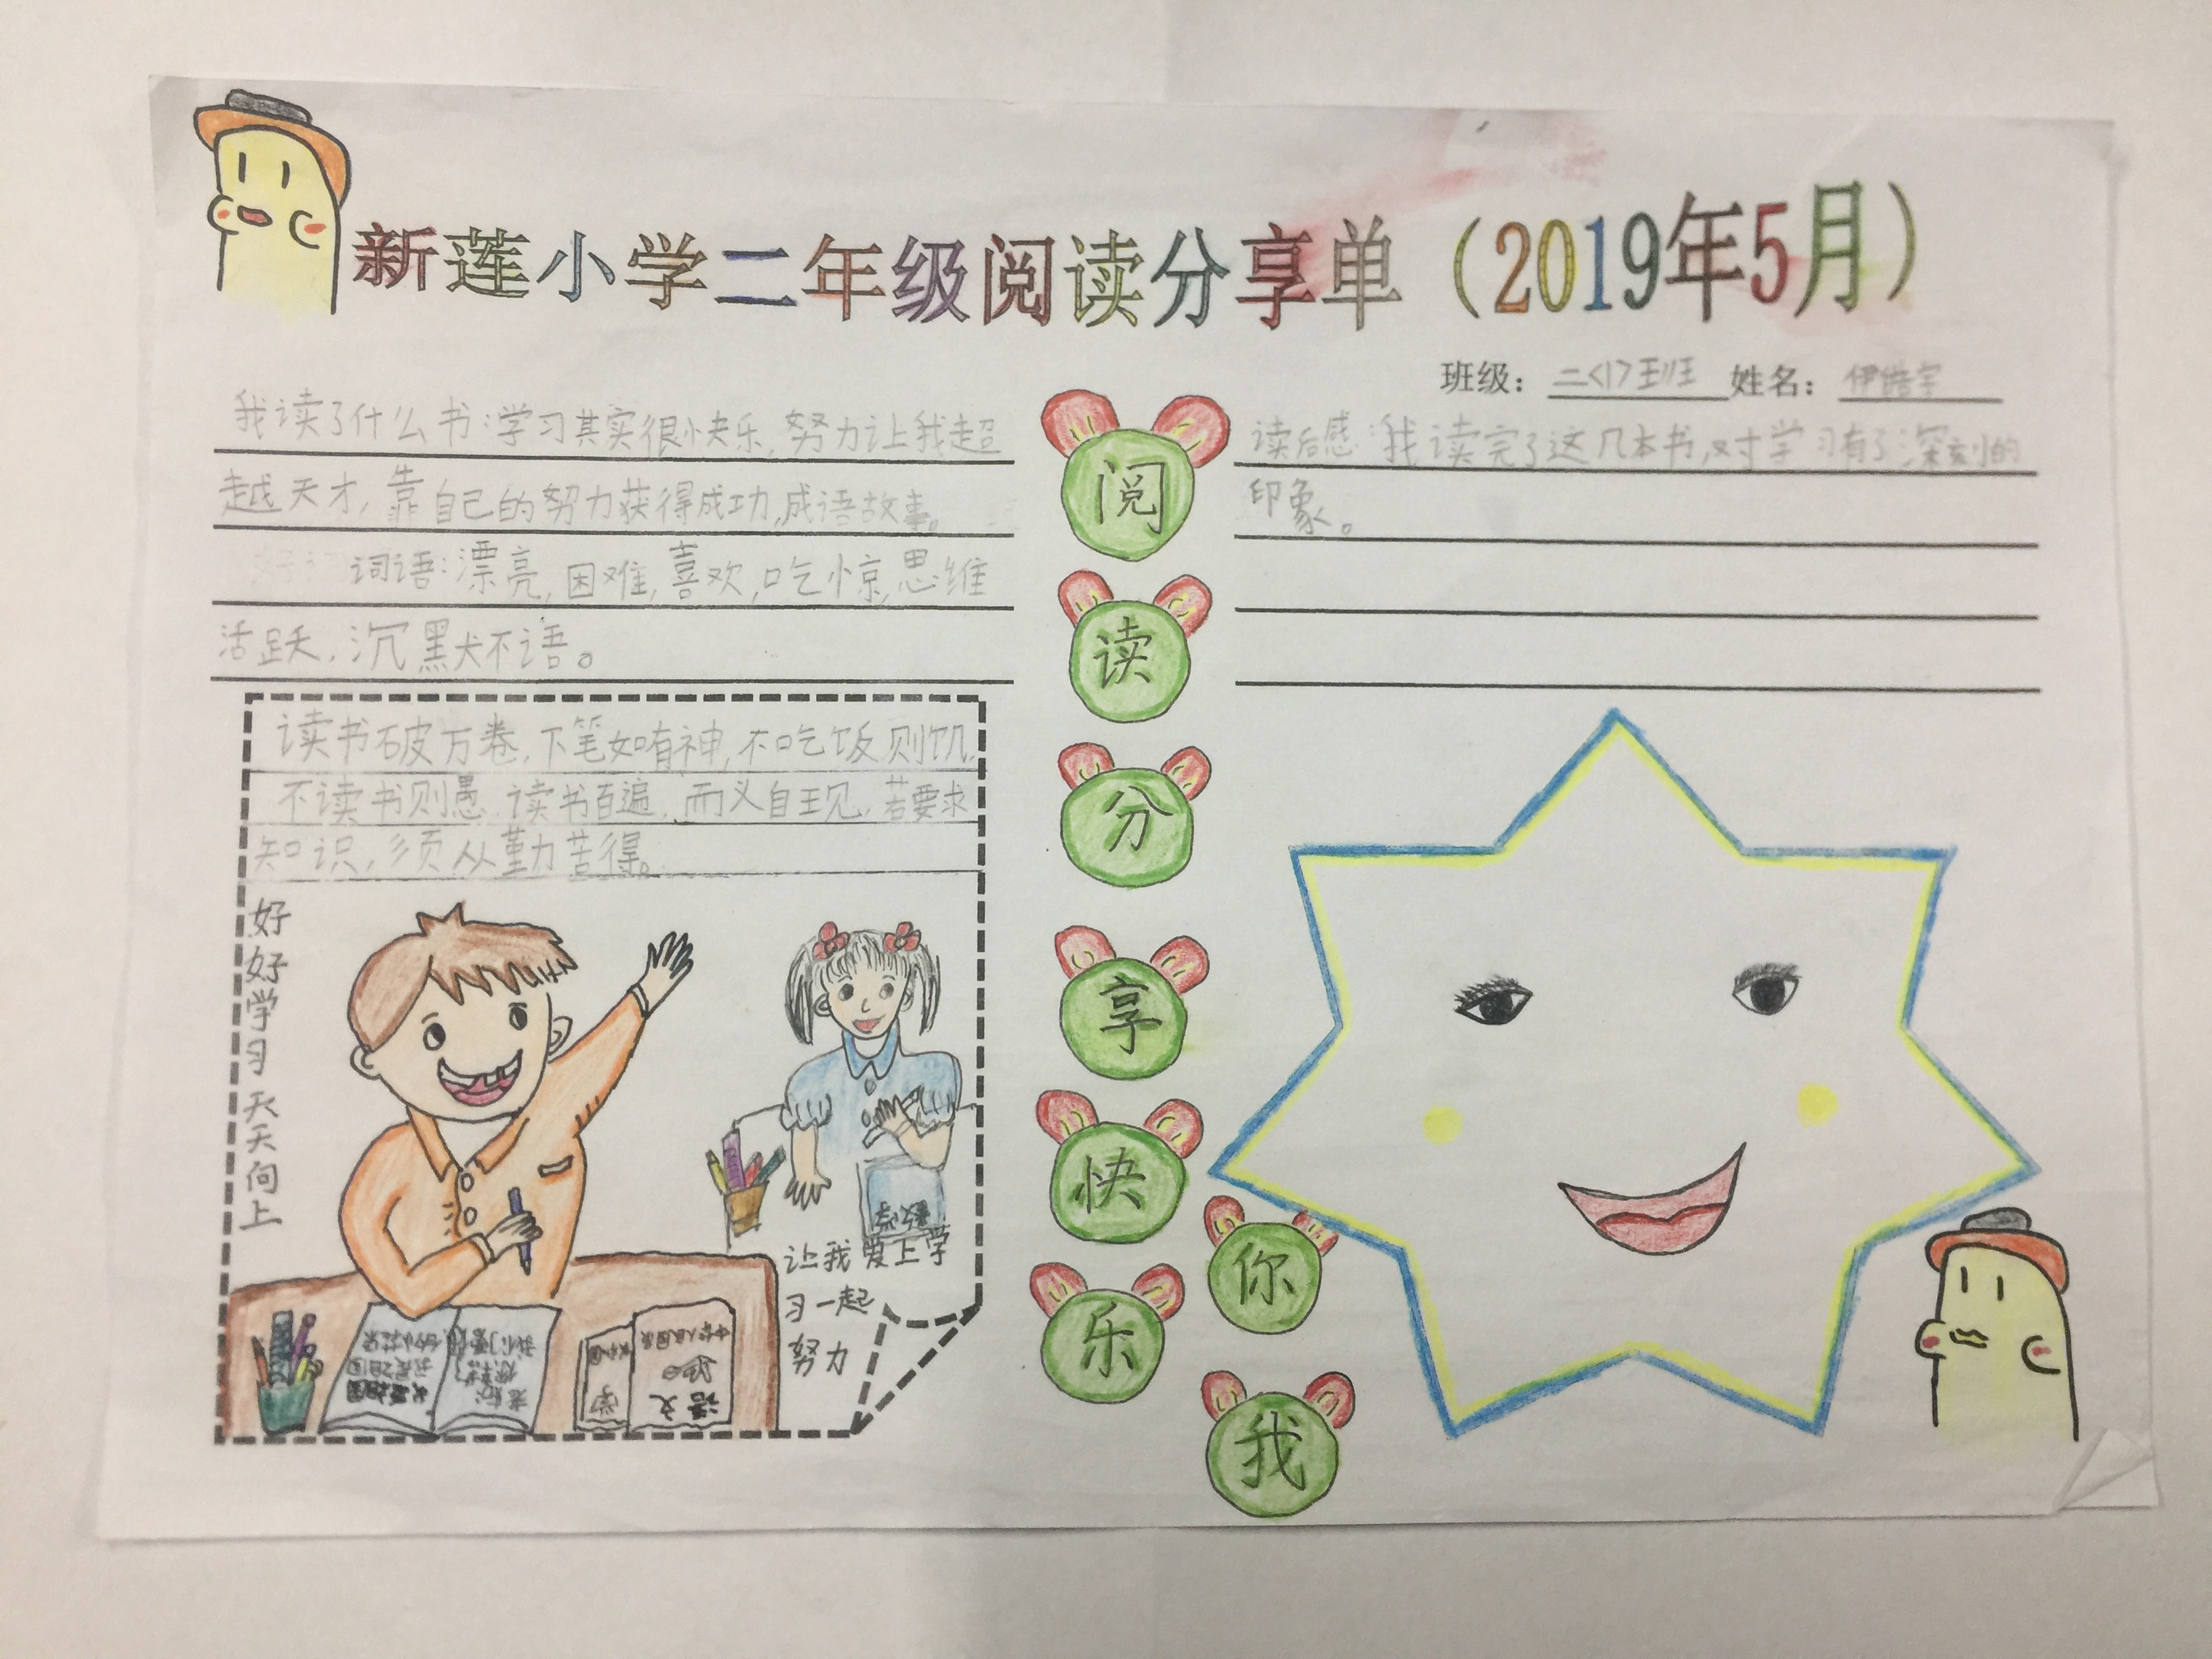 新莲小学二年级阅读分享单（2019年5月）
班级：二<1>班 姓名：伊皓宇
我读了什么书:学习其实很快乐,努力让我超
越天才,靠自己的努力获得成功,成语故事。
词语:漂亮,困难,喜欢,吃惊,思维
活跃,沉默不语。
读书破万卷,下笔如有神,不吃饭则饥,
不读书则愚.读书百遍,而义自王见,若要求
知识,须从勤苦得。
好好学习天天向上
让我爱上学
习一起
努力
我爱祖国
语文
阅
读
分
享
快
乐
你
我
读后感:我读完了这几本书,对学习有了深刻的
印象。